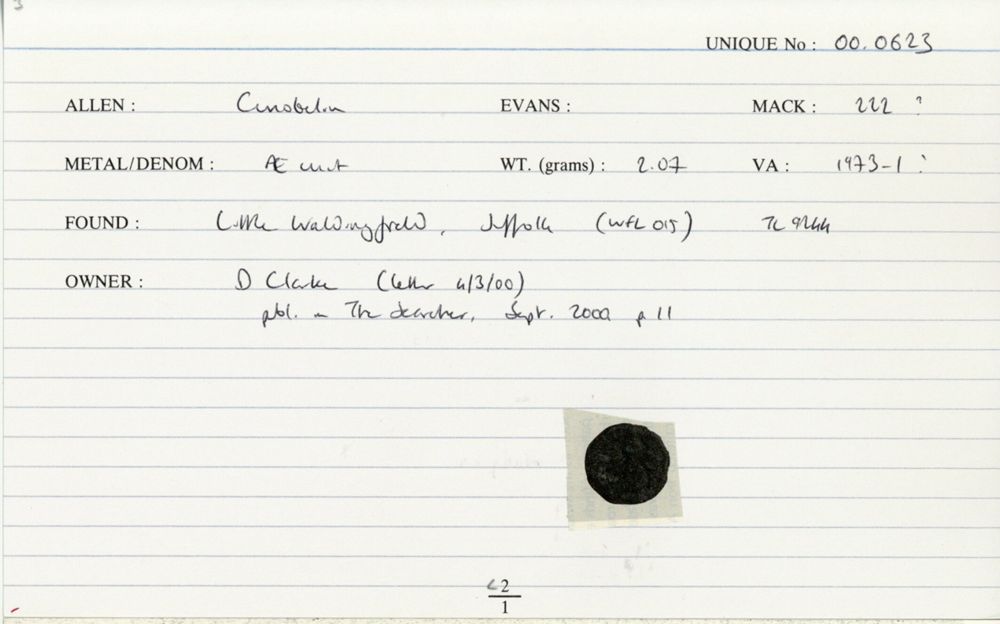 3
UNIQUE No : 00.0623
ALLEN : Cunobelin EVANS : MACK : 222 ?
METAL/DENOM : Æ unit WT. (grams) : 2.07 VA : 1973-1 ?
FOUND : Little Waldingfield, Suffolk (WFL 015) TL 9244
OWNER : D Clarke (letter 4/3/00)
publ. in The Searcher, Sept. 2000 p 11
2
1